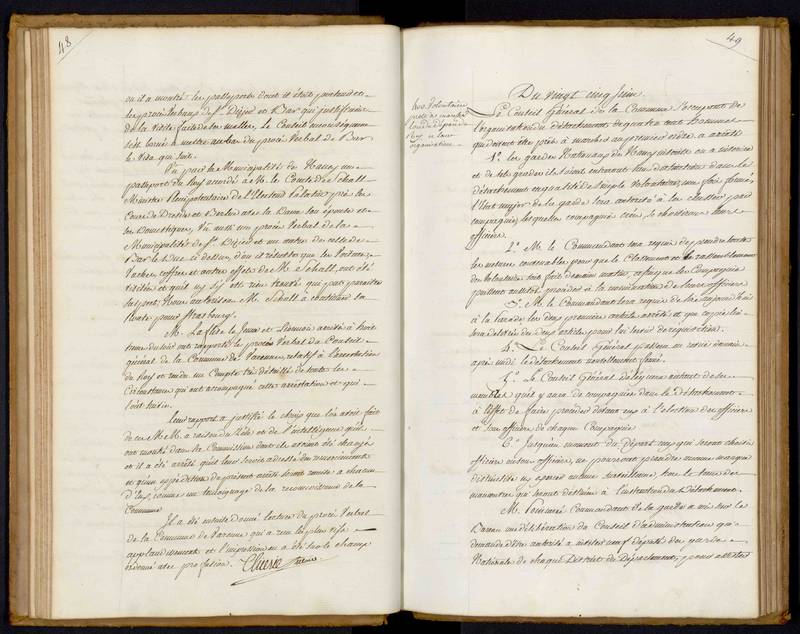 48
où il a montré les passeports dont il était porteur et
les procès verbaux de St. Dizier et Bar qui justifiaient
de la visite faite de ses malles. Le Conseil
s'est borné à mettre au bas du procès Verbal de Bar
le Visa qui suit.
Vu par la Municipalité de Nancy un
passeport du Roy accordé à M. le Comte de Schall
Ministre Plénipotentiaire de l'Electeur Palatin près les
Cours de Dresde et Berlin avec la Dame son épouse et
les Domestiques, Vu aussi un procès Verbal de la
Municipalité de St. Dizier et un autre de celle de
Bar le Duc ci dessus, d'où il résulte que les Voitures,
Vaches, coffres et autres effets de M. Schall, ont été
visités et qu'il ne s'y est rien trouvé qui put paraître
suspect; Nous autorisons M. Schall à continuer sa
Route pour Strasbourg.
M. La flize le Jeune et arrivés à huit
heures du soir ont rapporté le procès Verbal du Conseil
général de la Commune de Varennes, relatif à l'arrestation
du Roy et rendu un Compte très détaillé de toutes les
Circonstances qui ont accompagné cette arrestation et qui
l'ont suivie.
Leur rapport a justifié le choix que l'on avoit fait
de ces MM. à raison du zèle et de l'intelligence qu'ils
ont montré dans la Commission dont ils avaient été chargés
et il a été arrêté qu'il leur seroit adressé des remerciements
et qu'une expédition du présent arrêté seroit remise à chacun
d'eux, comme un témoignage de la reconnoissance de la
Commune
Il a été ensuite donné lecture du procès Verbal
de la Commune de Varennes qui a reçu les plus vifs
applaudissements et l'impression en a été sur le champ
ordonnée avec profusion.
49
Du vingt cinq Juin.
Volontaires
prêts à marcher
organisation
Le Conseil Général de la Commune s'occupant de
l'organisation du détachement de quatre cent hommes
qui doivent être prêts à marcher au premier ordre a arrêté
1.° les gardes Nationales de Nancy
et de tels grades ils soient entreront dans le
détachement en qualité de simples Volontaires, une fois formés,
l'Etat major de la garde sera autorisé à les classer par
compagnies, lesquelles compagnies leurs
officiers.
2.° M. le Commandant sera requis de prendre toutes
les mesures convenables pour que le Classement et le rassemblement
des Volontaires soit fait demain matin, afin que les Compagnies
puissent aussitôt procéder à la nomination de leurs officiers
3.° M. le Commandant sera requis de lire aujourd'hui
à la Parade les deux premiers articles arrêtés et que copie lui
sera délivrée des deux articles pour lui servir de réquisition.
4.° Le Conseil Général passera en revue demain
après midi le détachement nouvellement formé.
5.° Le Conseil Général déléguera autant de ses
membres qu'il y aura de compagnies dans le détachement
à l'effet de faire procéder devant eux à l'élection des officiers
et sous officiers de chaque Compagnie
6.° Jusqu'au moment du départ ceux qui seront choisis
officiers ou sous officiers, ne pourront prendre aucune marque
distinctive ni exercer aucune surveillance, hors le tems des
manœuvres qui seront destinées à l'instruction du Détachement.
M. Poincaré Commandant de la garde a mis sur le
Bureau une délibération du Conseil d'administration qui
demande d'être autorisé à inviter neuf députés des gardes
Nationales de chaque District du Département, pour assister